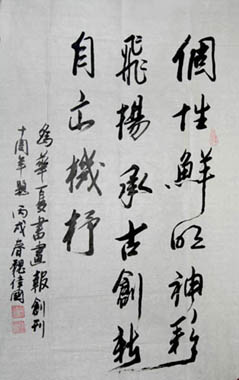 個性鮮明神彩
飛揚承古創新
自出機杼
為華夏書畫報創刊
十周年題 丙戌春魏佳國